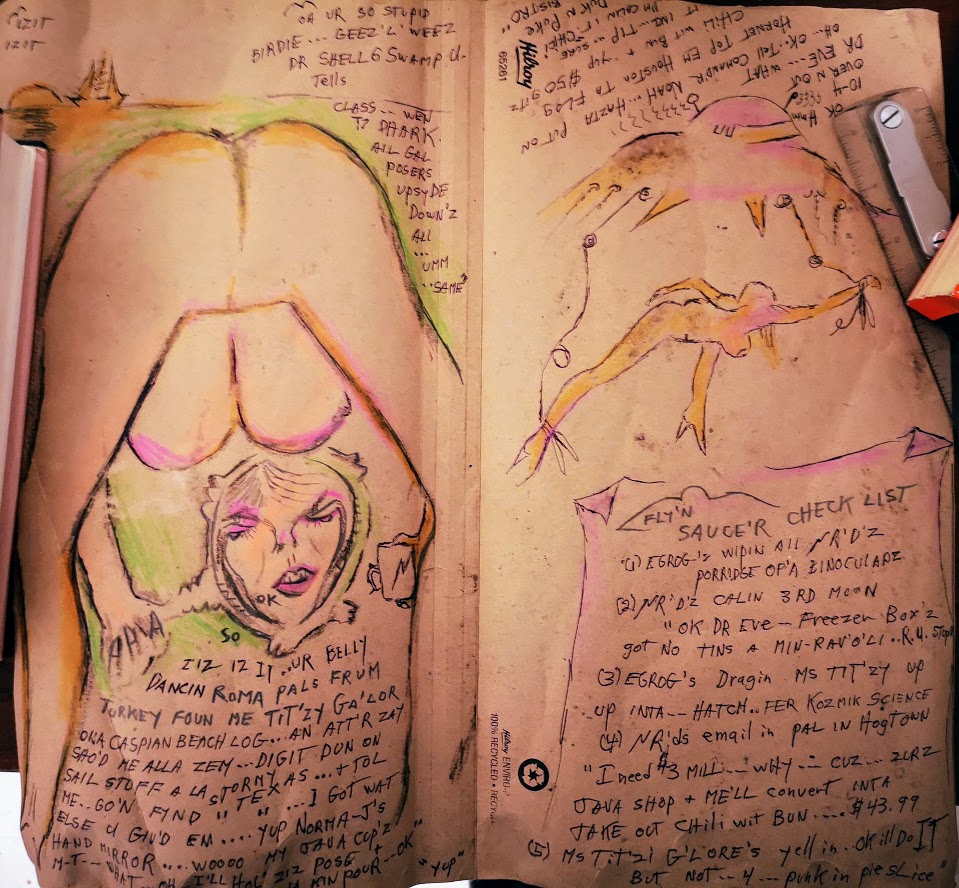 IZIT
IZIT
OA UR SO STUPID
BIRDIE... GEEZ'L'WEEZ
DR SHELL6 SWAMP U.
Tells
CLASS... WEN
DHARK
AIL GAL
POSERS
UPSYDE
DOWN'Z
All
...
UMM
"SAME"
OK
SO
JAVA
I'IZ IZ IT..UR BELLY
DANCIN ROMA PALS FRUM
TURKEY FOUN ME TIT'ZY GA'LOR
ONA CASPIAN BEACH LOG...AN ATT'R ZAY
SHO'D ME ALLA ZEM...DIGIT DUN ON
SAIL STUFF A LA STORNY AS...+ TOL
ME..GO'N FYND " S'TEX " ...I GOT WAT
ELSE U GIV'D EM....YUP NORMA-J'S
HAND MIRROR....WOOOO MY JAVA CUP'Z
M-T-- WHAT...OH..I'LL HOL' ZIZ POSE +
U KIN POUR--OK
"YUP"
Hilroy
65261
DUK N BISTRO
PH COLIN
"PUKE"
IT INZ...TIP...SURE
CHILI WIT BUN + YUP $50
HORNET TOP EM HOUSTON TA FLOG ITZ
OH... OK..Tell COMANDR NOAH...HAZTA PUT ON
DR EVE--- WHAT
10-4
OVER N OUT
OK
Hmm
FLY'N
SAUCE'R CHECK LIST
(1) EGROG'S WIPIN All NR'D'Z
PORRIDGE OF'A BINOCULARZ
(2) NR'D'Z CALIN 3RD MOON
"OK DR Eve-- Freezer Box'z
got NO TINS A MIN-RAV'O'LI..R.U. Stop
(3) EGROG'S Dragin MS TIT'ZY UP
UP INTA-- HATCH..FER KOZMIK SCIENCE
(4) NR'ds email in PAL IN HogTOWN
"I need $3 MILL--- WHY -- CUZ... 2LRZ
JAVA SHOP + ME'LL CONVERT INTA
TAKE OUT CHILI WIT BUN.... $43.99
(5) MS TIT'ZI G'LORE'S yell in..OK ill Do IT
BUT NOT..4...punk in pie sLice"
Hilroy ENVIRO
100% RECYCLED